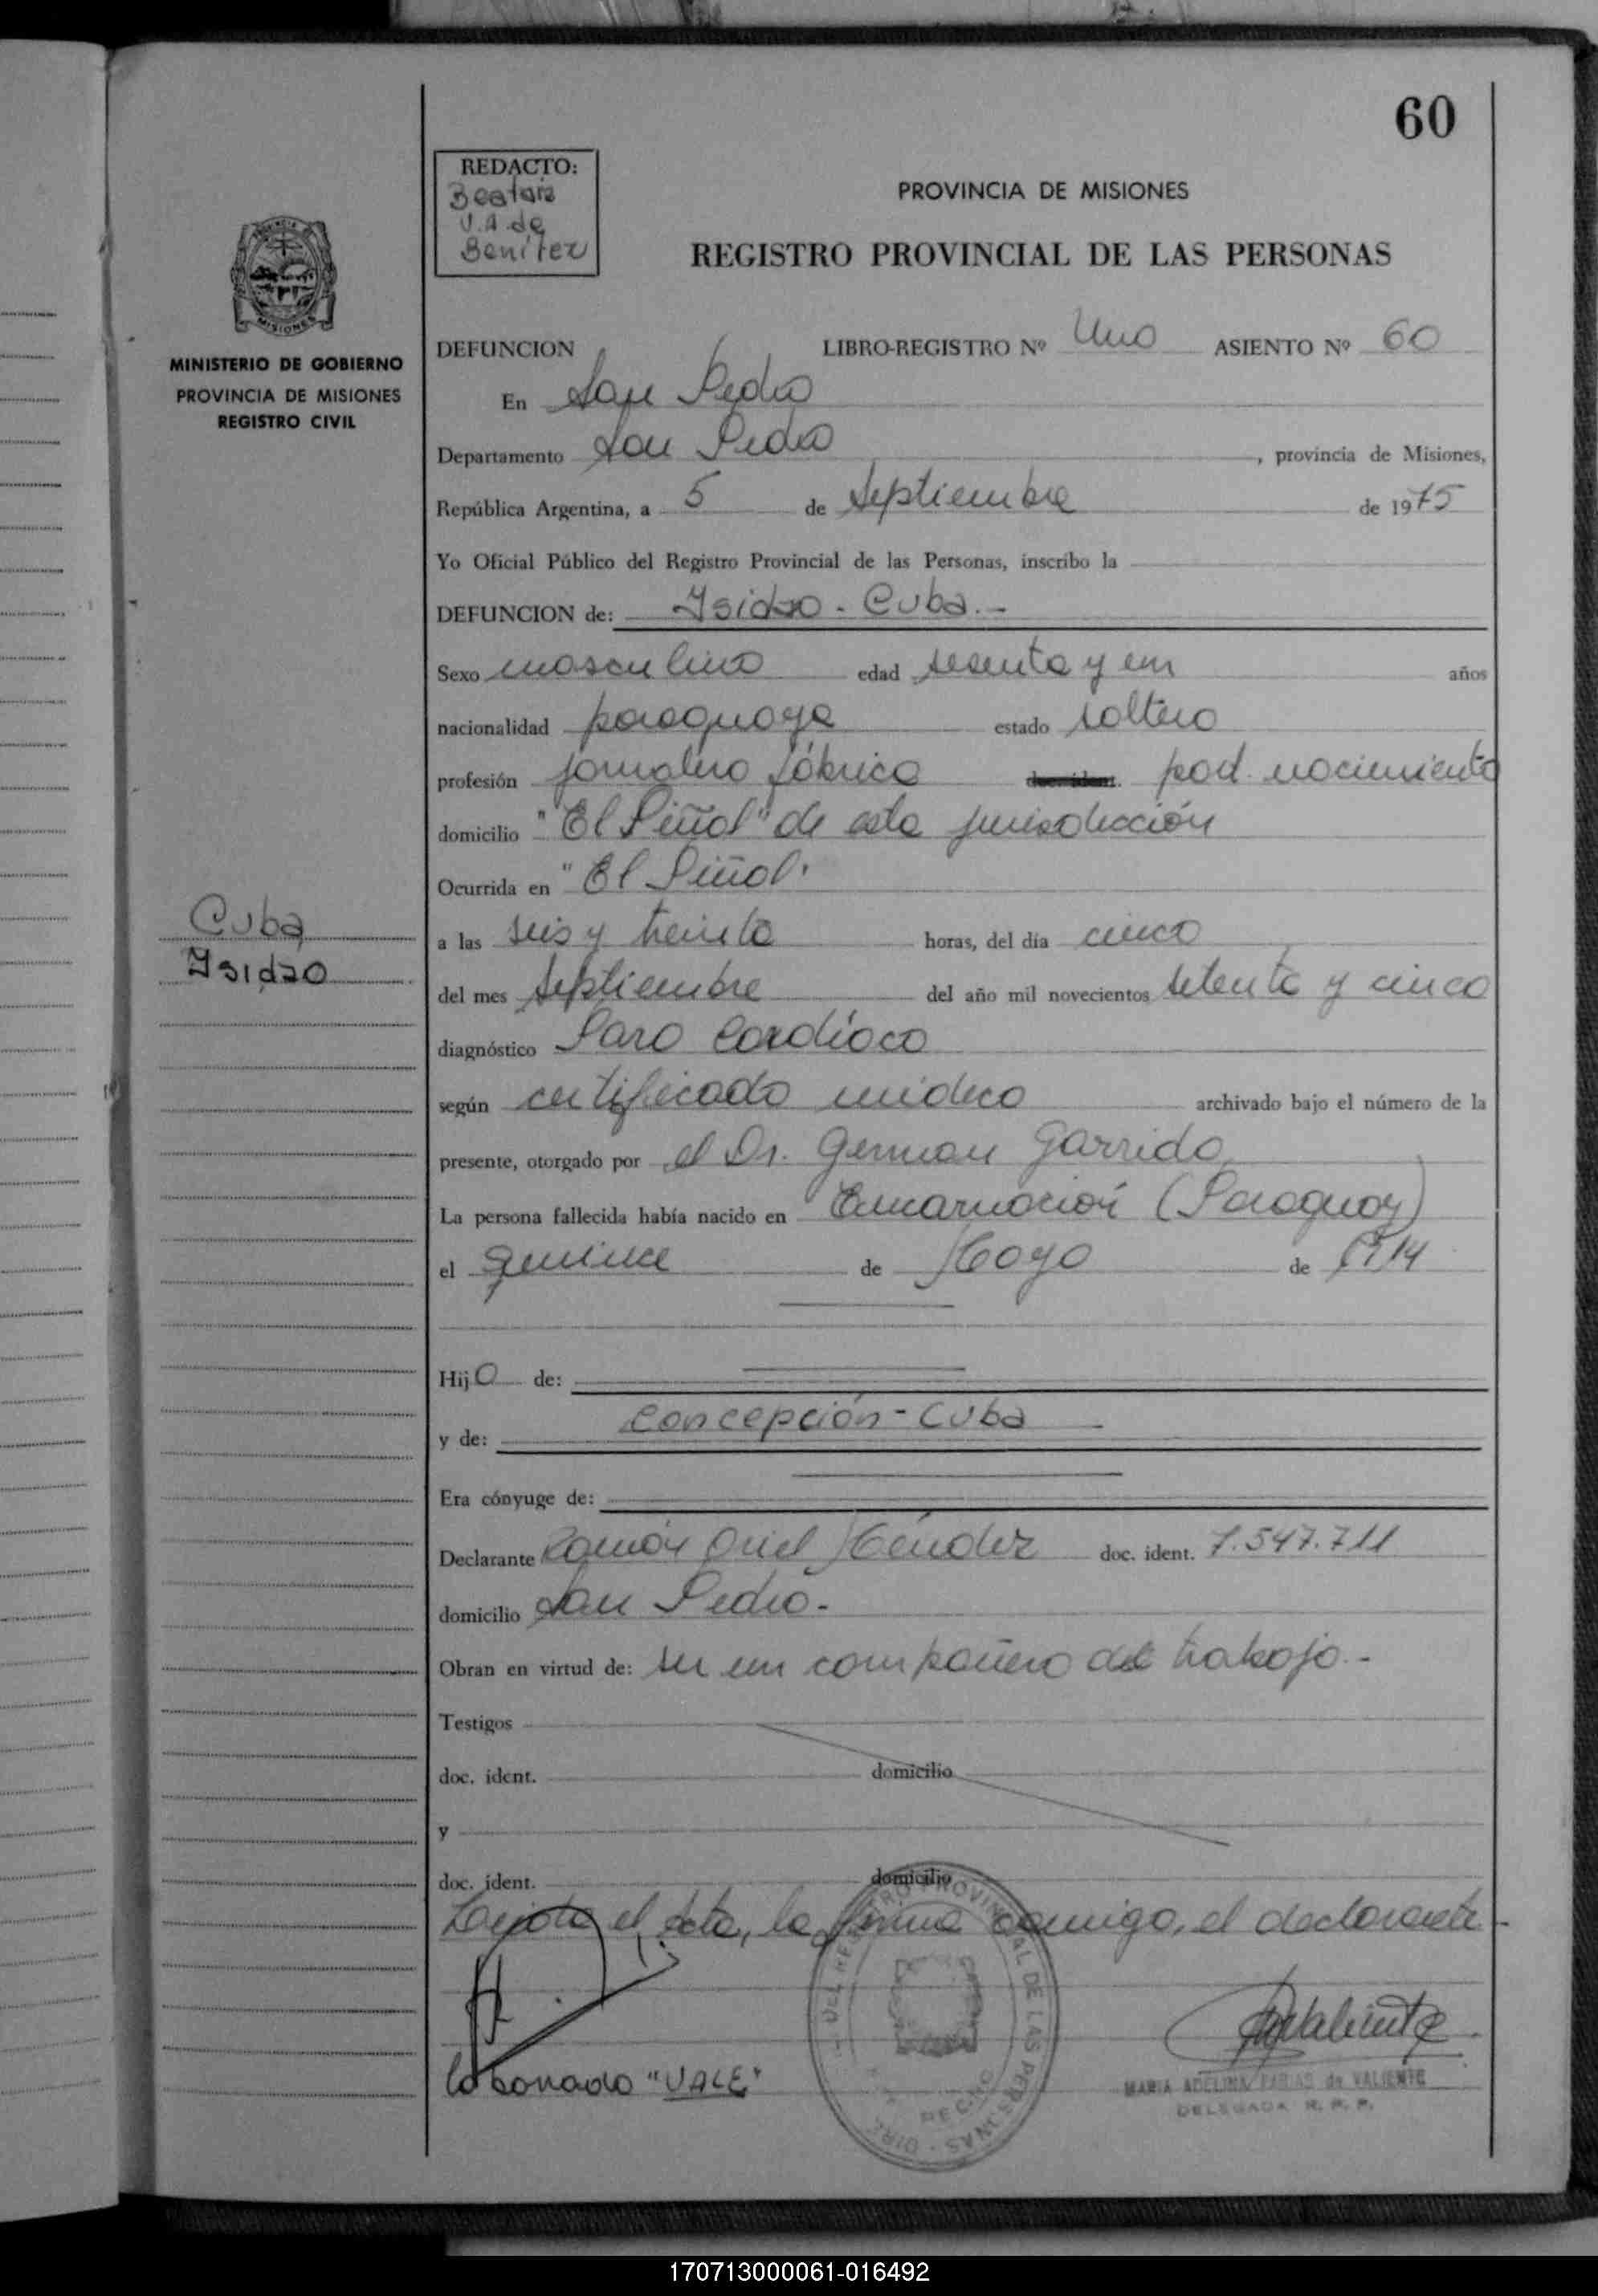 60
REDACTO:
Beatriz
V.A. de
Benítez
PROVINCIA DE MISIONES
REGISTRO PROVINCIAL DE LAS PERSONAS
MISIONES
MINISTERIO DE GOBIERNO
PROVINCIA DE MISIONES
REGISTRO CIVIL
DEFUNCION LIBRO-REGISTRO Nº Uno ASIENTO Nº 60
En San Pedro
Departamento San Pedro, provincia de Misiones,
República Argentina, a 5 de Septiembre de 1975
Yo Oficial Público del Registro Provincial de las Personas, inscribo la
DEFUNCION de: Ysidro - Cuba.-
Sexo masculino edad sesenta y un años
nacionalidad paraguaya estado soltero
profesión jornalero fábrica doc. ident. pod. nacimiento
domicilio "El Piñal" de esta jurisdicción
Ocurrida en "El Piñal"
Cuba
Ysidro
a las seis y treinta horas, del día cinco
del mes Septiembre del año mil novecientos setenta y cinco
diagnóstico Paro Cardíaco
según certificado médico archivado bajo el número de la
presente, otorgado por el Dr. German Garrido
La persona fallecida había nacido en Encarnación (Paraguay)
el quince de Mayo de 1914
Hijo de:
y de: Concepción - Cuba
Era cónyuge de:
Declarante Ramón Oriel Méndez doc. ident. 7.547.711
domicilio San Pedro.-
Obran en virtud de: ser un compañero de trabajo.-
Testigos
doc. ident. domicilio
y
doc. ident. domicilio
Leída el acta, la firma conmigo, el declarante-
lo borrado "VALE"
MARIA ADELINA FARIAS de VALIENTE
DELEGADA R. P. P.
170713000061-016492